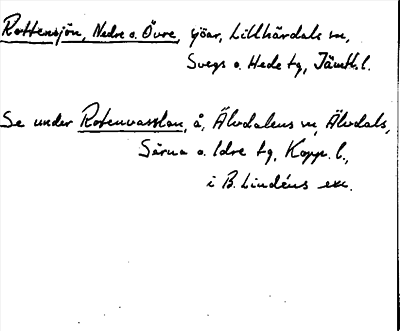 Rottensjön, Nedre o. Övre, sjöar, Lillhärdals sn,
Svegs o. Hede tg, Jämtl. l.
Se under Rotenvasslan, å, Älvdalens sn, Älvdals,
Särna o. Idre tg, Kopp. l.,
i B. Lindéns exc.